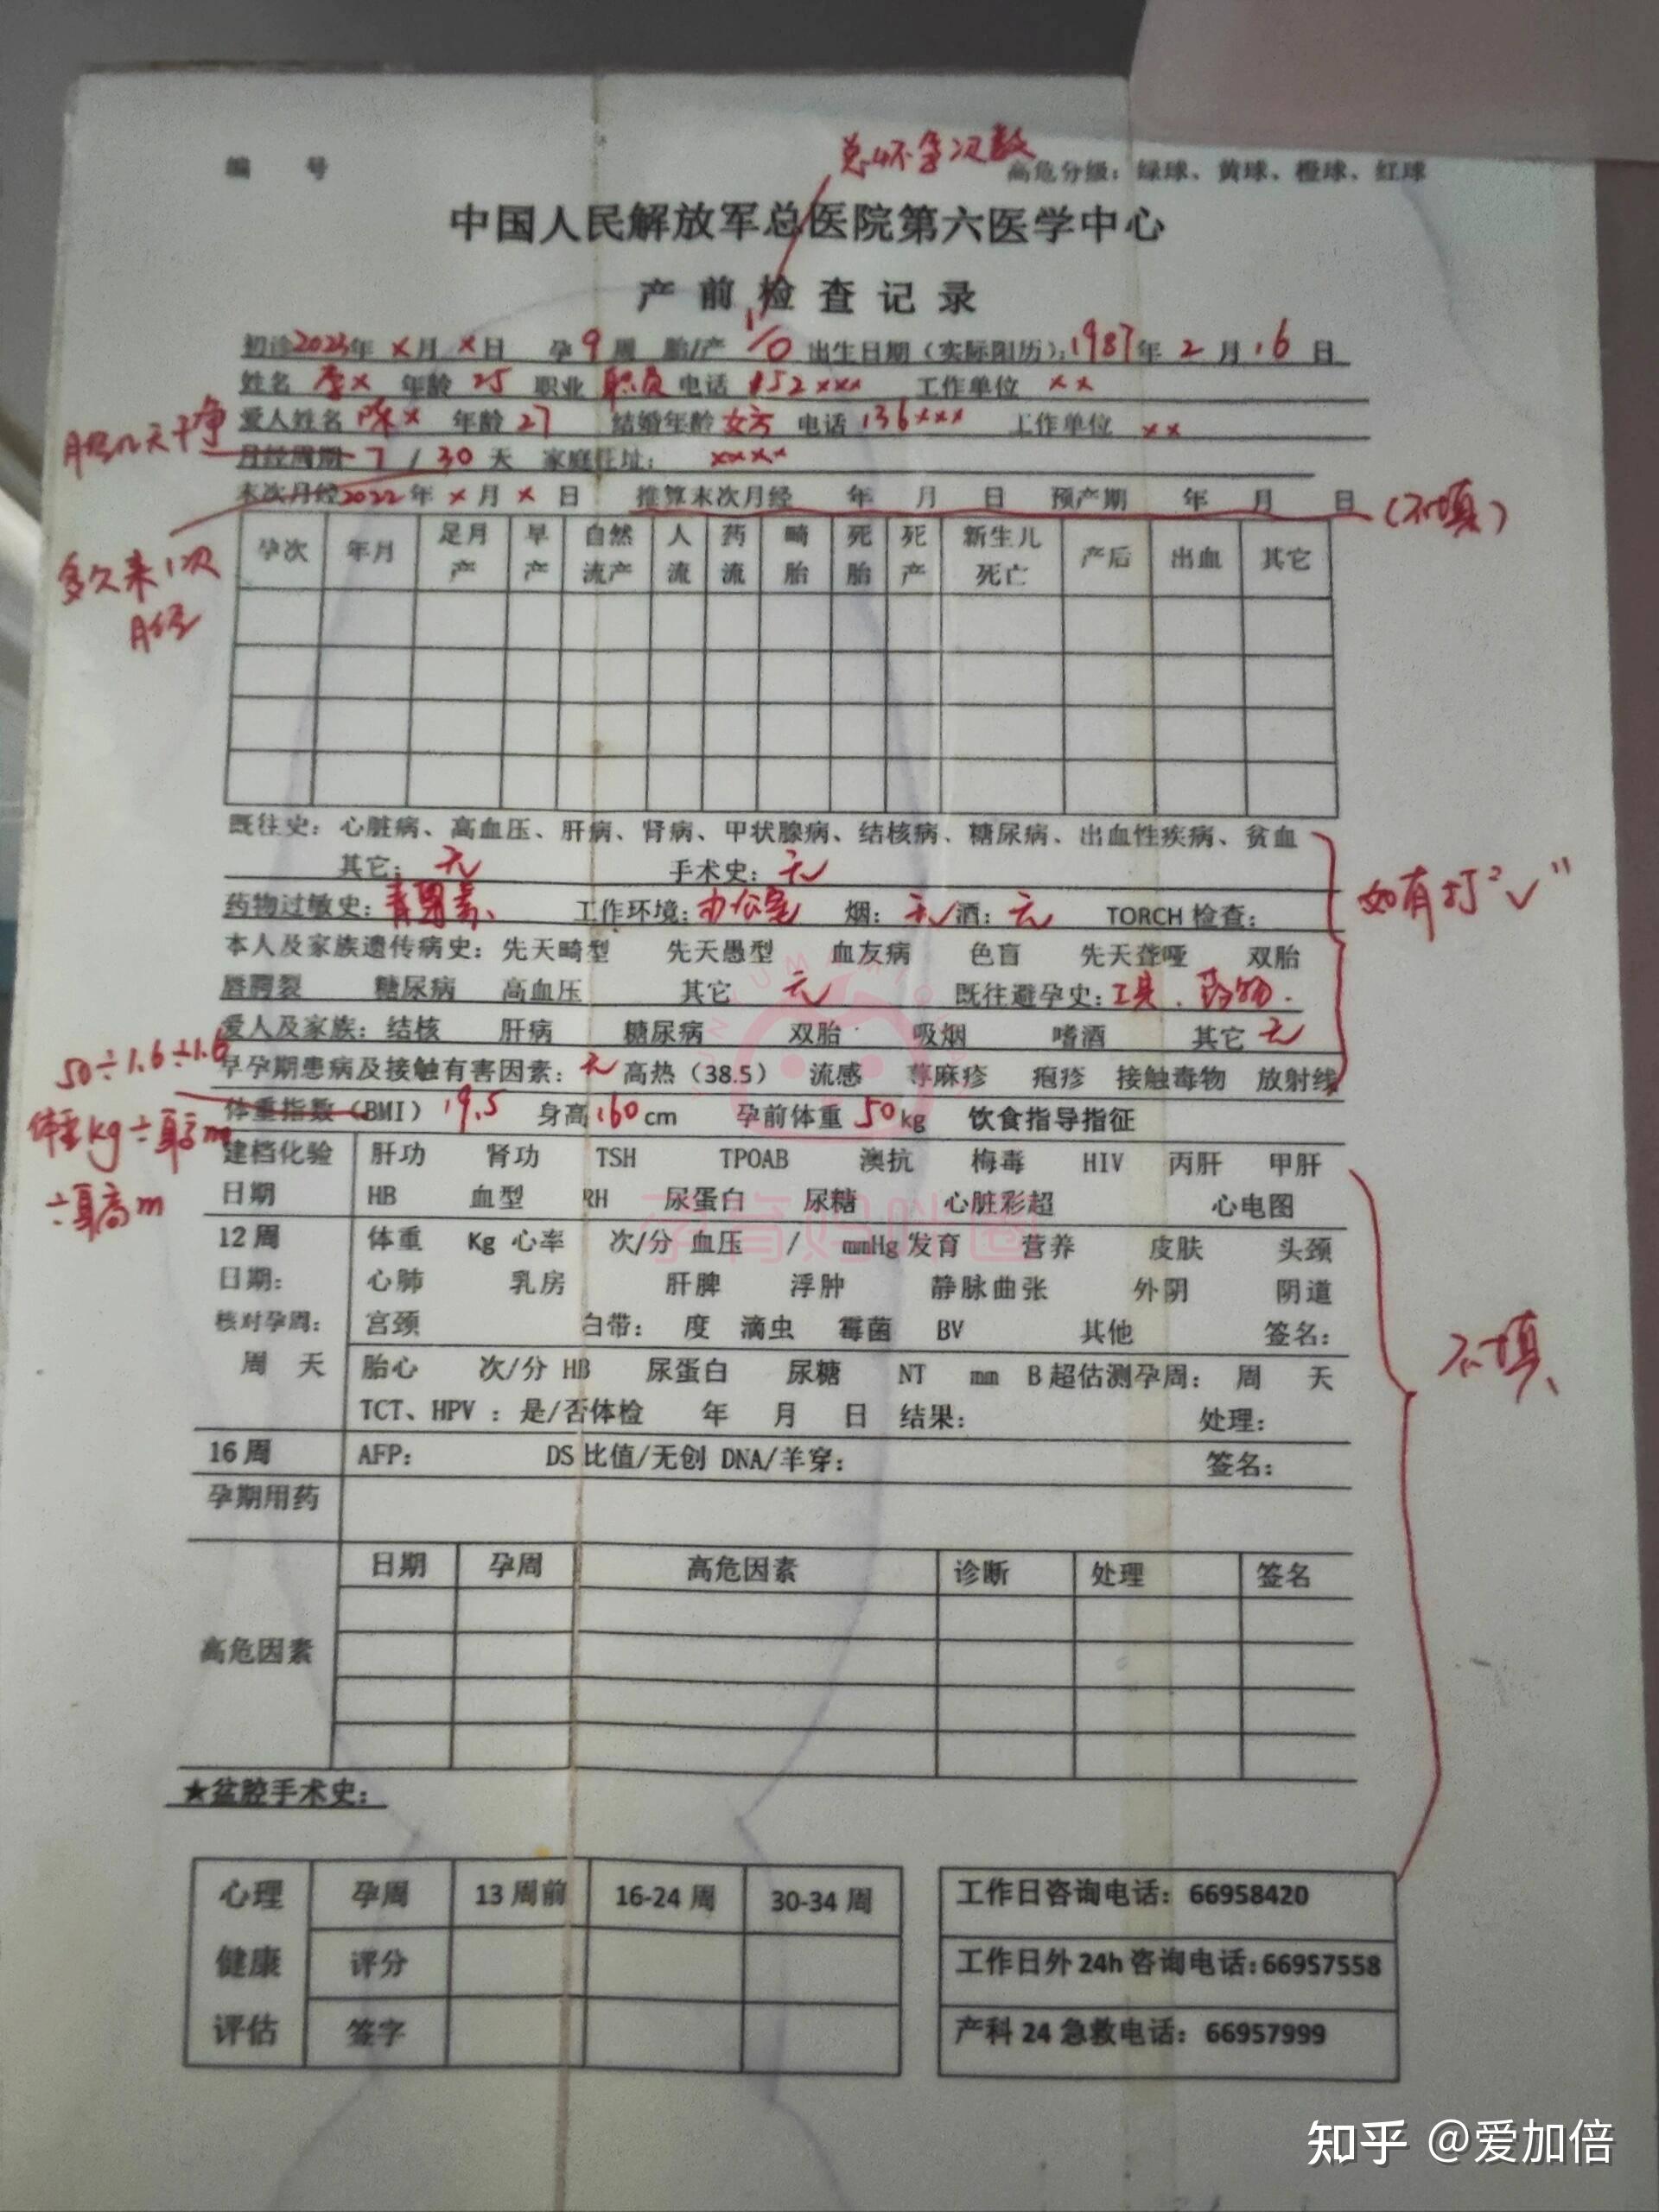 总怀孕次数
编 号 高危分级：绿球、黄球、橙球、红球
中国人民解放军总医院第六医学中心
产 前 检 查 记 录
初诊2023年 x月 x日 孕9周 胎/产 1/0 出生日期（实际阳历）：1987年 2月16日
姓名 李x 年龄 25 职业 职员 电话 152xxx 工作单位 xx
爱人姓名 陈x 年龄27 结婚年龄 女方 电话136xxx 工作单位 xx
月经几天干净
月经周期 7 / 30 天 家庭住址： xxxx
末次月经2022年 x月 x 日 推算末次月经 年 月 日 预产期 年 月 日 (不填)
多久来1次
月经
孕次 年月 足月产 早产 自然流产 人流 药流 畸胎 死胎 死产 新生儿死亡 产后 出血 其它
既往史：心脏病、高血压、肝病、肾病、甲状腺病、结核病、糖尿病、出血性疾病、贫血
其它：无 手术史：无
如有打"√"
药物过敏史：青霉素、 工作环境：办公室 烟：无 酒：无 TORCH 检查：
本人及家族遗传病史：先天畸型 先天愚型 血友病 色盲 先天聋哑 双胎
唇腭裂 糖尿病 高血压 其它 无 既往避孕史：工具．药物．
爱人及家族：结核 肝病 糖尿病 双胎 吸烟 嗜酒 其它 无
50÷1.6÷1.6
早孕期患病及接触有害因素：无 高热（38.5） 流感 荨麻疹 疱疹 接触毒物 放射线
体重指数（BMI） 19.5 身高160cm 孕前体重 50kg 饮食指导指征
体重kg÷身高m
÷身高m
建档化验 肝功 肾功 TSH TPOAB 澳抗 梅毒 HIV 丙肝 甲肝
日期 HB 血型 RH 尿蛋白 尿糖 心脏彩超 心电图
孕育妈咪圈
12周 体重 Kg 心率 次/分 血压 / mmHg 发育 营养 皮肤 头颈
日期： 心肺 乳房 肝脾 浮肿 静脉曲张 外阴 阴道
核对孕周： 宫颈 白带： 度 滴虫 霉菌 BV 其他 签名：
不填、
周 天 胎心 次/分 HB 尿蛋白 尿糖 NT mm B超估测孕周： 周 天
TCT、HPV ：是/否体检 年 月 日 结果： 处理：
16周 AFP： DS 比值/无创 DNA/羊穿： 签名：
孕期用药
日期 孕周 高危因素 诊断 处理 签名
高危因素
★盆腔手术史：
心理 孕周 13 周前 16-24 周 30-34 周
健康 评分
评估 签字
工作日咨询电话：66958420
工作日外24h咨询电话：66957558
产科 24 急救电话：66957999
知乎 @爱加倍